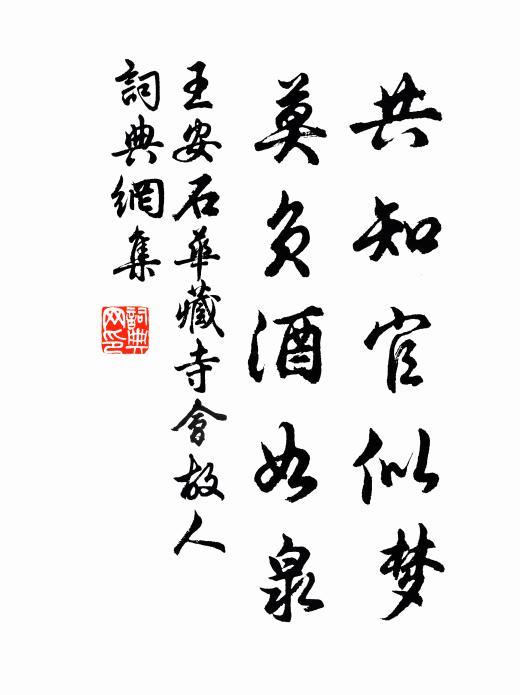 共知官似梦
莫负酒如泉
王安石華藏寺會故人
詞典網集
詞典网印